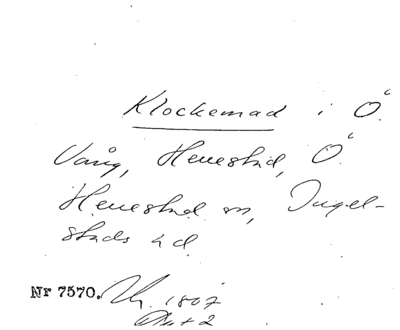 Klockemad i Ö.
Vång, Henestad, Ö.
Henestad sn, Ingel-
stads hd.
Nr 7570. 1807
Akt 2